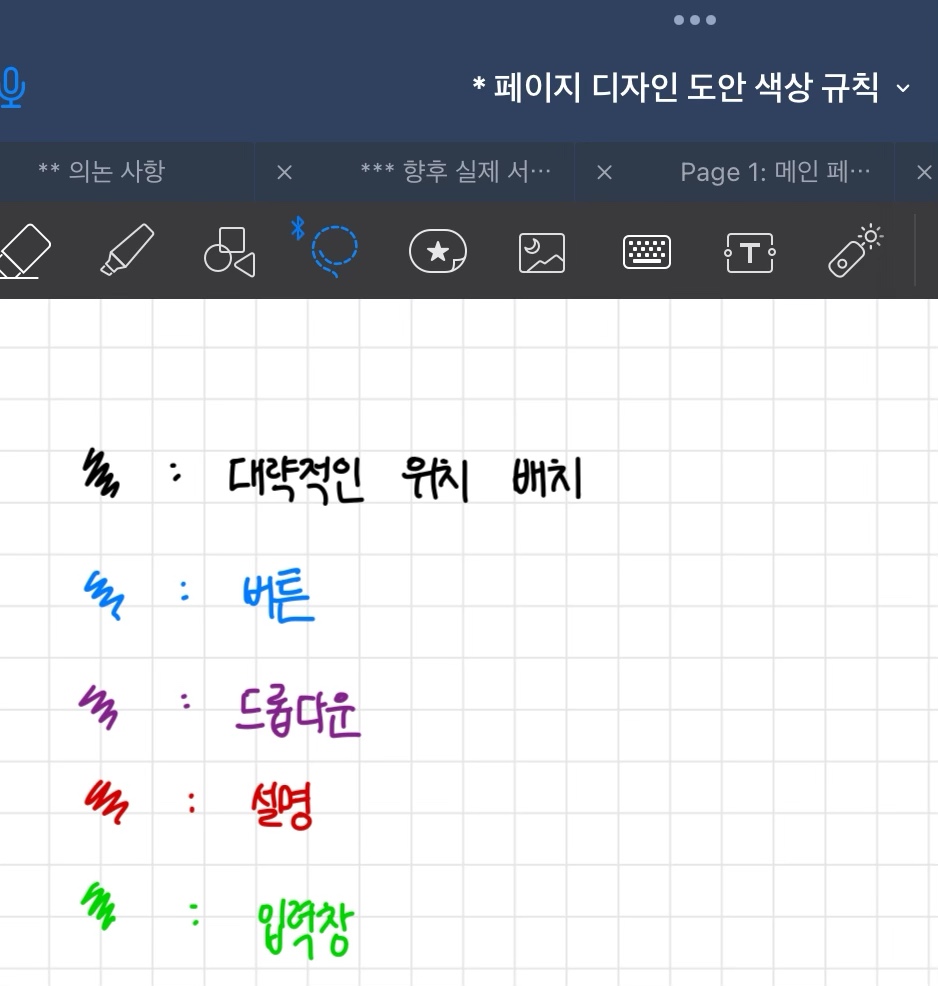 * 페이지 디자인 도안 색상 규칙
** 의논 사항
*** 향후 실제 서…
Page 1: 메인 페…
T
: 대략적인 위치 배치
: 버튼
: 드롭다운
: 설명
: 입력창